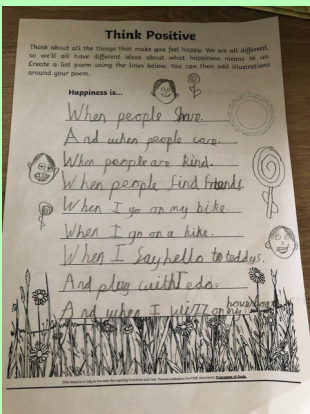 Think Positive
Think about all the things that make you feel happy. We are all different,
so we'll all have different ideas about what happiness means to us.
Create a list poem using the lines below. You can then add illustrations
around your poem.
Happiness is...
When people Share.
And when people care.
When people are kind.
When people find friends.
When I go on my bike.
When I go on a hike.
When I say hello to teddys.
And play with
And when I wizz on my hoverboard